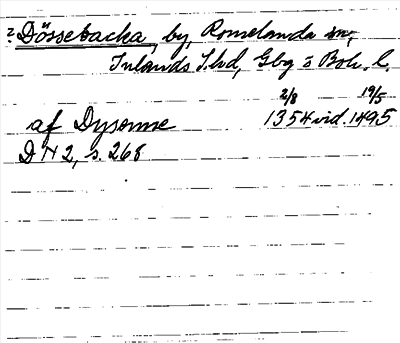 ? Dössebacka, by, Romelanda sn,
Inlands T.hd, Gbg o Boh. l.
2/8 19/5
af Dysonne 1354 vid. 1495
DN 2, s. 268